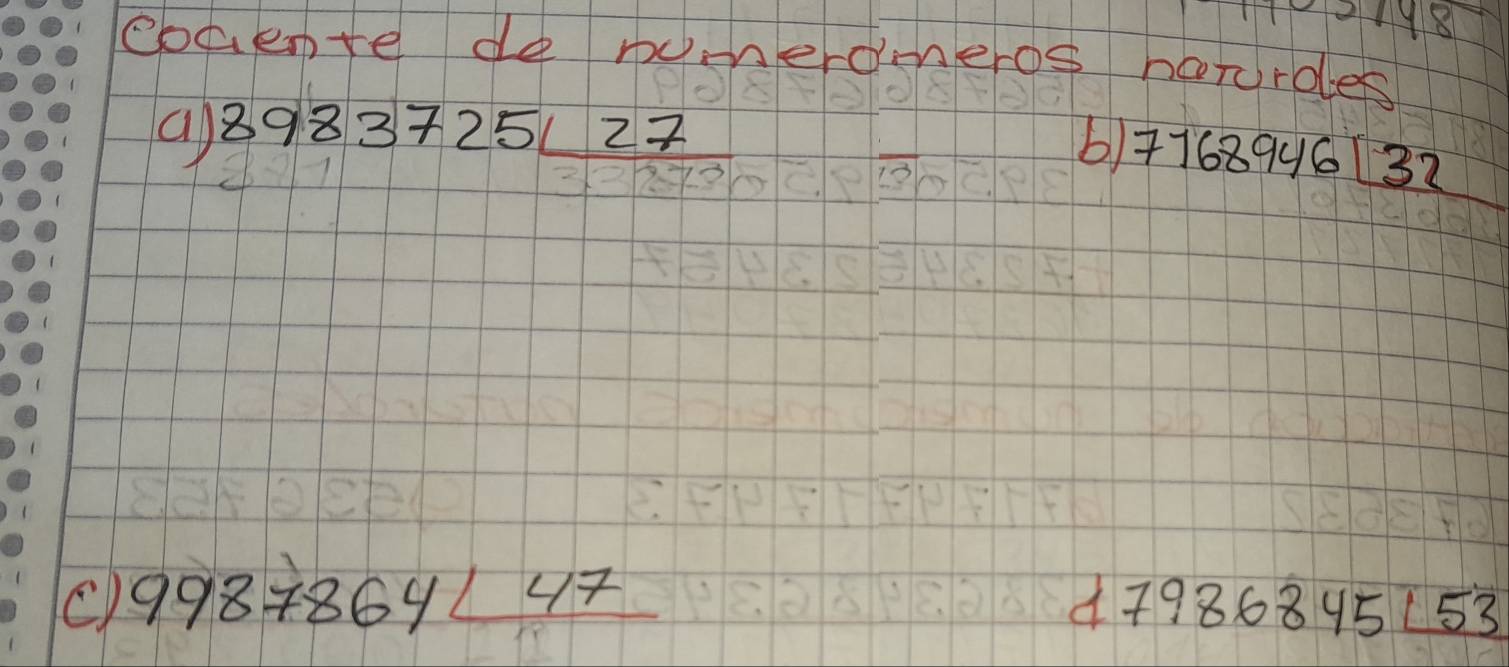 Cociente de numerómeros naturales
a) 8983725 27
b) 7768946 32
c) 9987864 47
d 7986845 53